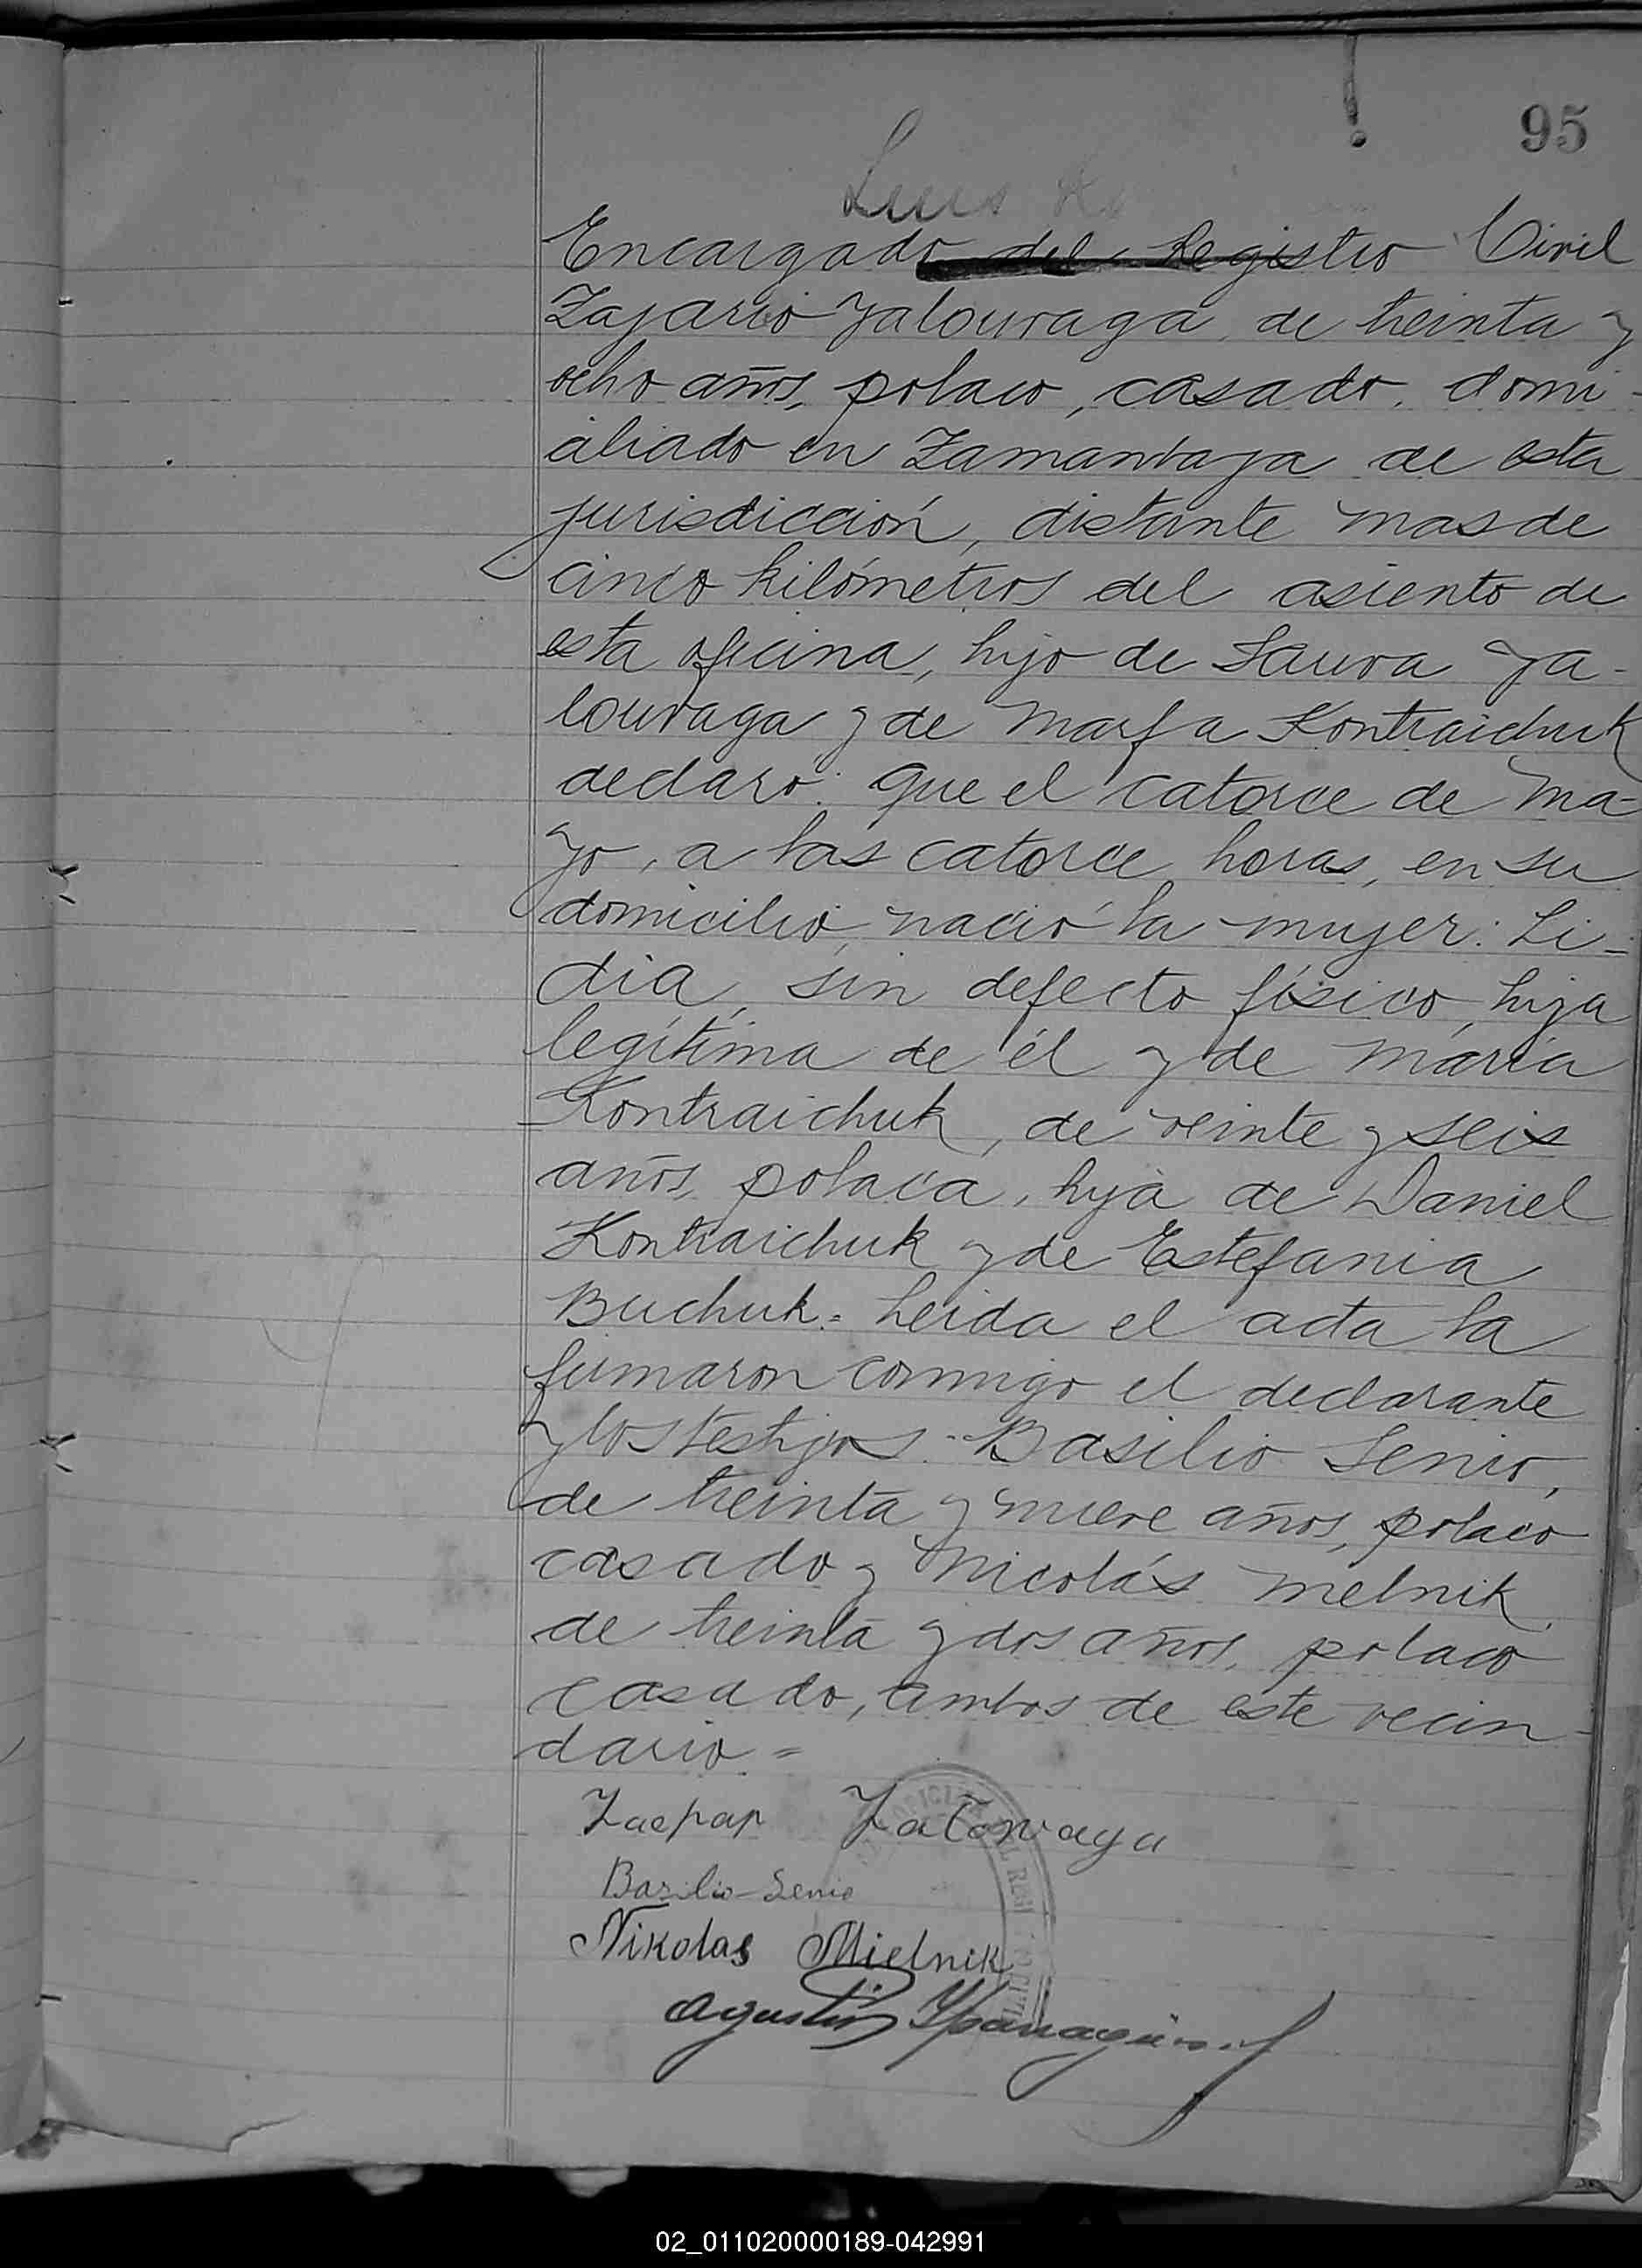 95
Luis
Encargado del Registro Civil
Zajario Jalouvaga, de treinta y
ocho años, polaco, casado, domi-
ciliado en Zamambaya de esta
jurisdicción, distante mas de
cinco kilómetros del asiento de
esta oficina, hijo de Saura Ja-
louvaga y de Marfa Kontraichuk
declaro: que el catorce de ma-
yo, a las catorce horas, en su
domicilio, nació la mujer: Li-
dia, sin defecto físico, hija
legítima de él y de María
Kontraichuk, de veinte y seis
años, polaca, hija de Daniel
Kontraichuk y de Estefania
Buchuk.= Leida el acta la
firmaron conmigo el declarante
y los testigos.- Basilio Senio,
de treinta y nueve años, polaco
casado y Nicolás Melnik,
de treinta y dos años, polaco
casado, ambos de este vecin-
dario.=
Zacpap Jatowaga
Bazilio Senio
Nikolas Mielnik
Agustin
02_011020000189-042991